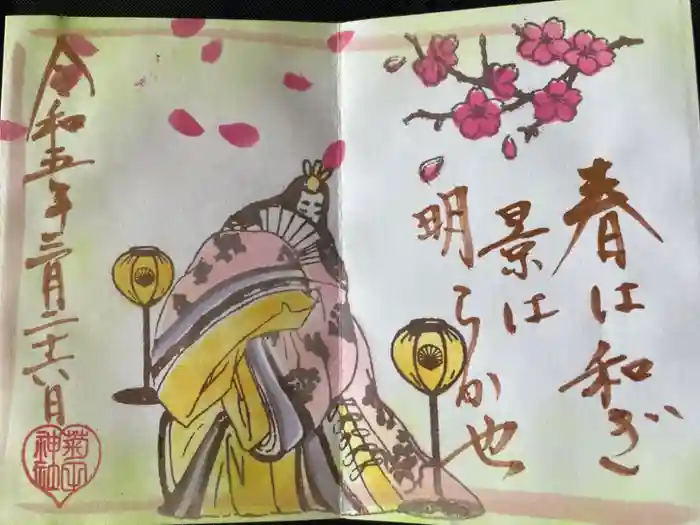 春は和ぎ
景は
明らか也
令和五年三月二十六日
菊田
神社